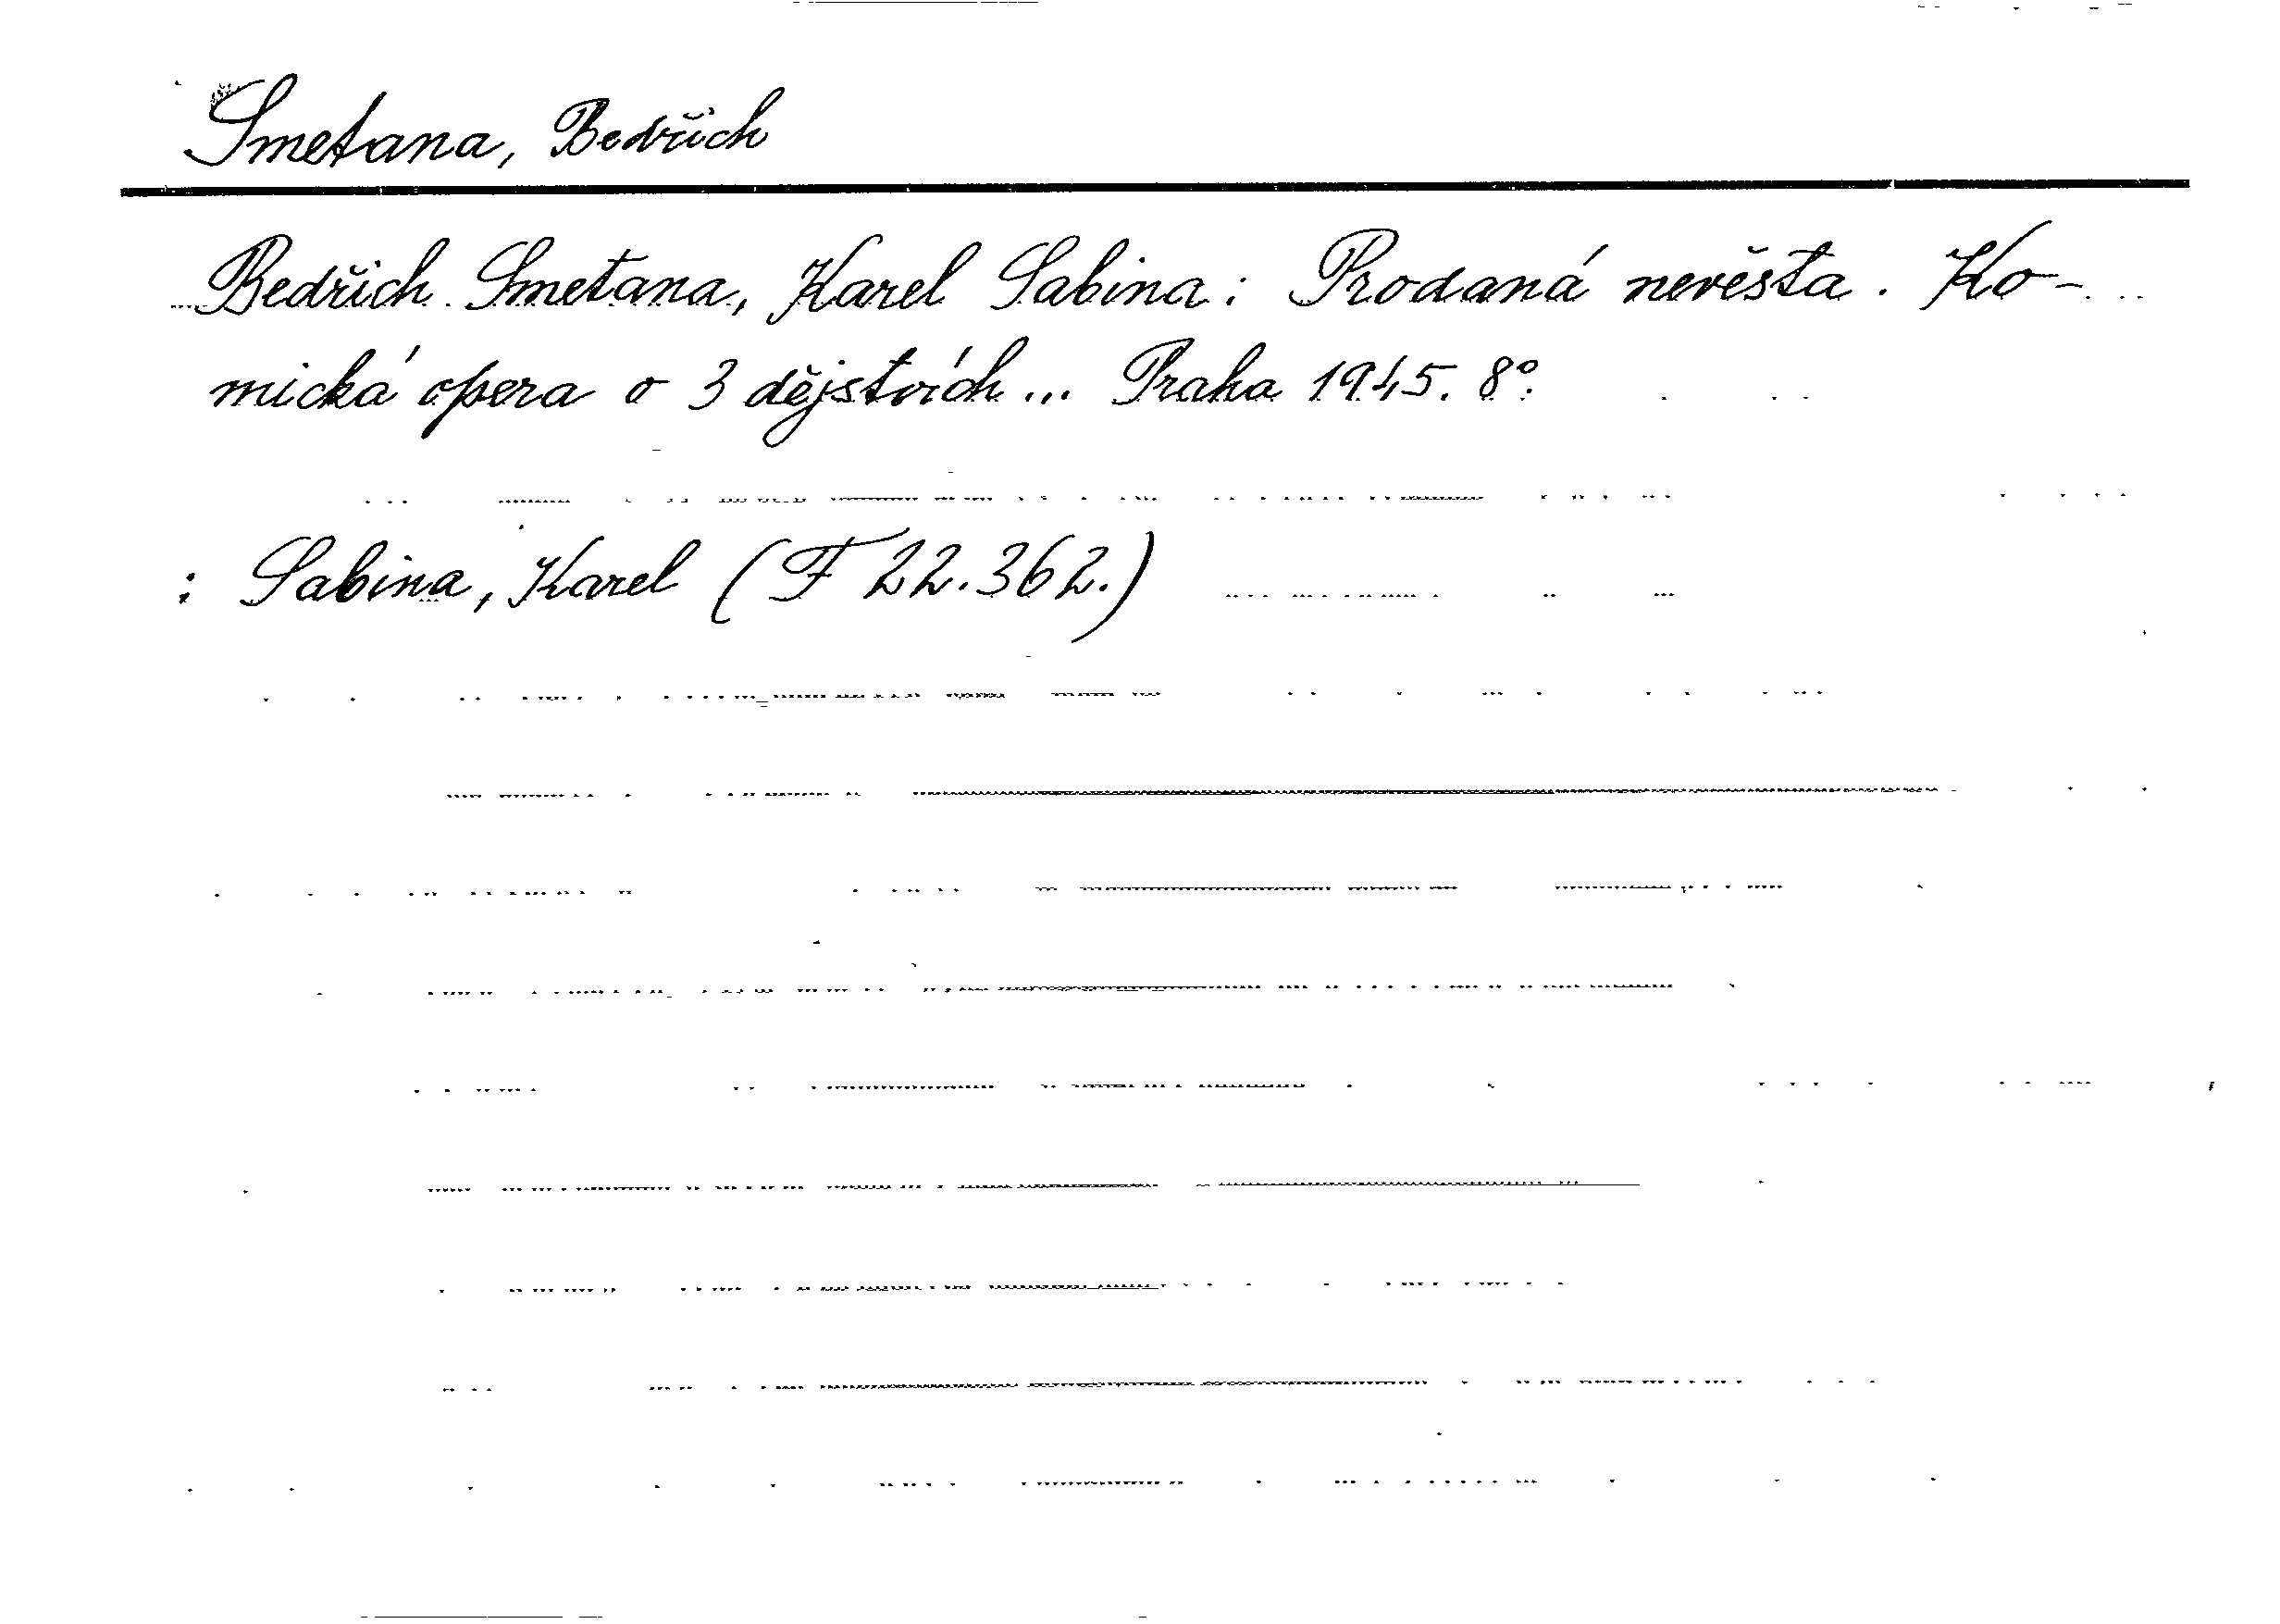 Smetana, Bedřich
Bedřich Smetana, Karel Sabina: Prodaná nevěsta. Ko-
mická opera o 3 dějstvích... Praha 1945. 8°.
: Sabina, Karel (F 22.362.)